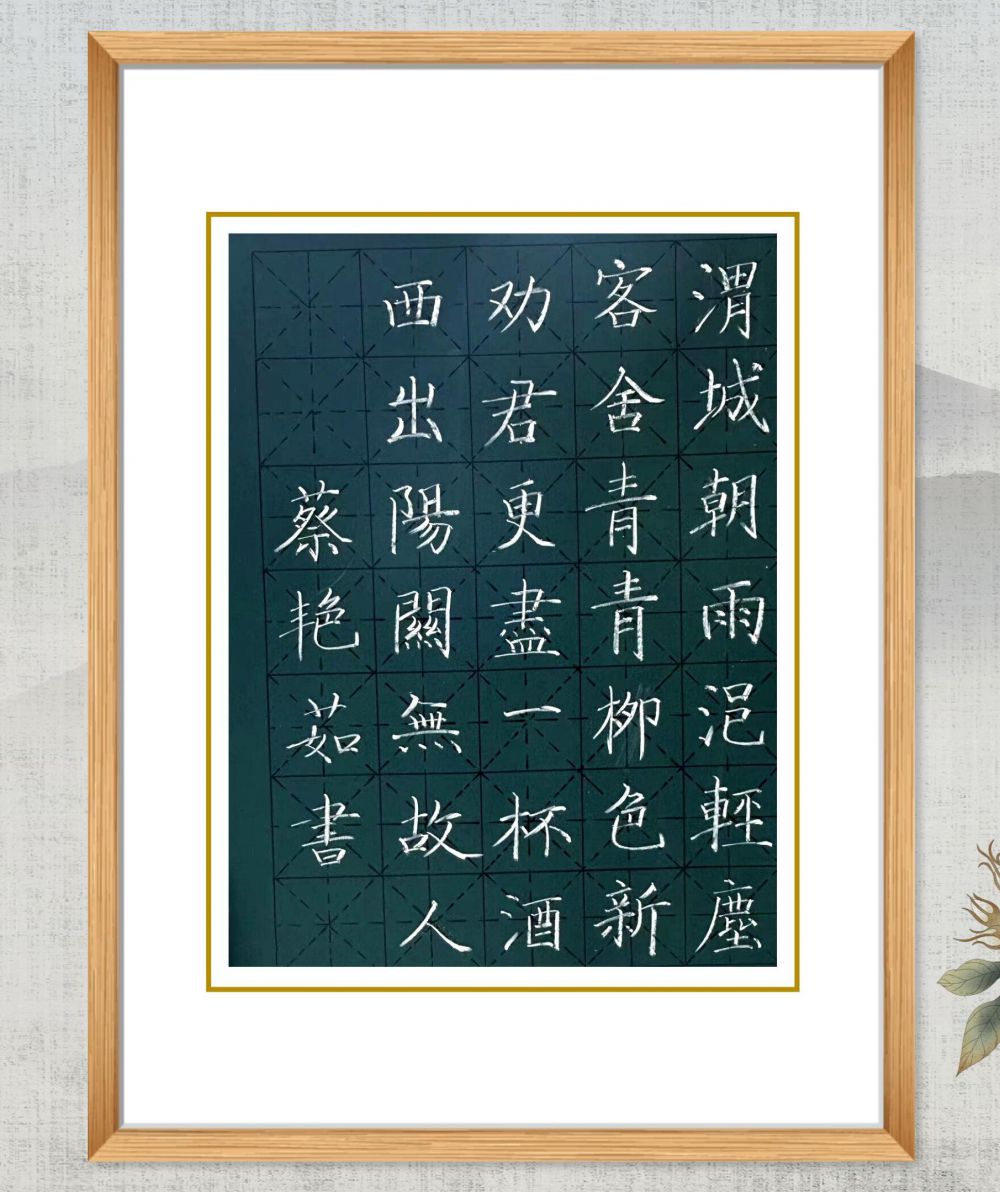 渭城朝雨浥輕塵
客舍青青柳色新
劝君更盡一杯酒
西出陽關無故人
蔡艳茹書